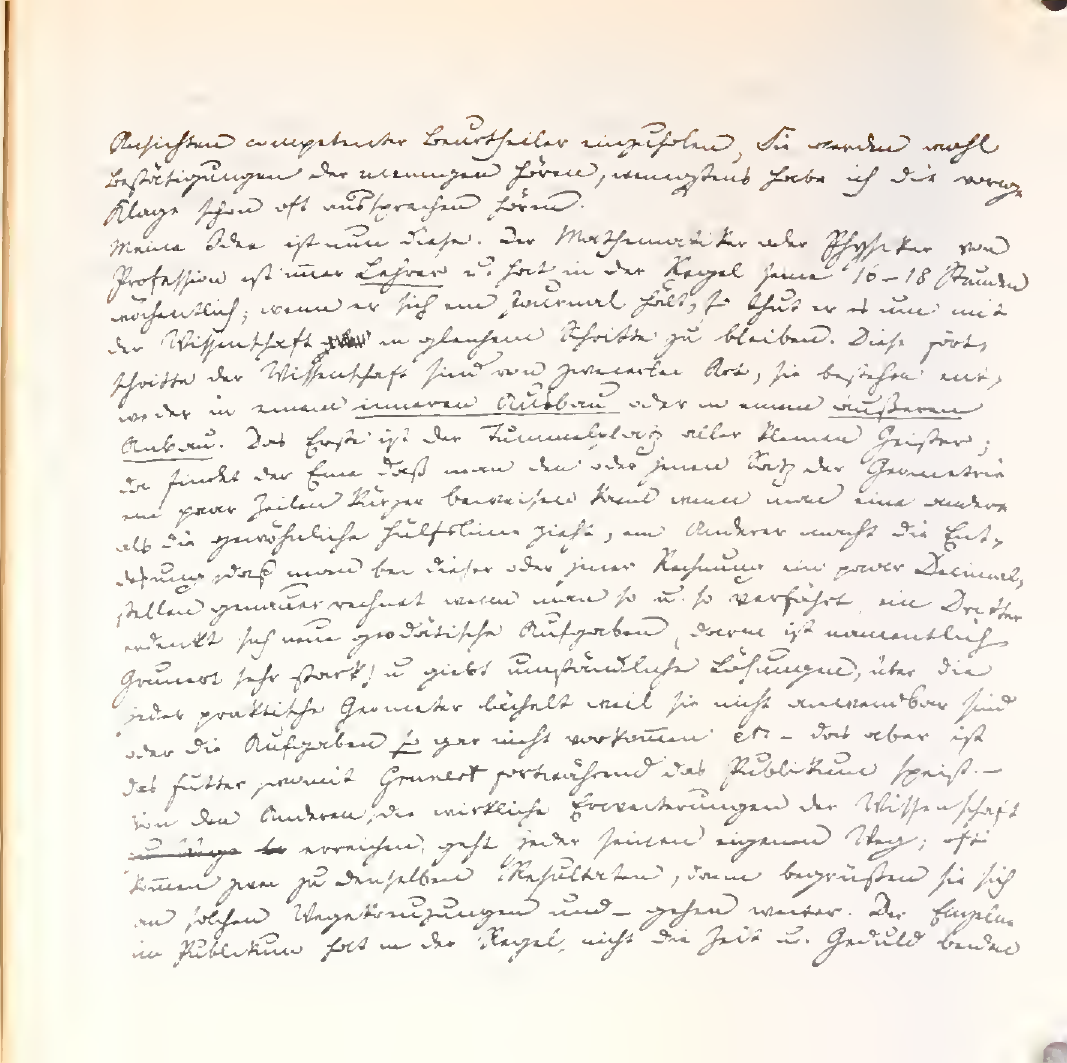 Ansichten competenter Beurtheiler einzuholen, Sie werden wohl
Bestätigungen der meinigen hören, wenigstens habe ich die vorige
Klage schon oft aussprechen hören.
Meine Idee ist nun diese. Der Mathematiker oder Physiker von
Profession ist immer Lehrer u. hat in der Regel seine 16–18 Stunden
wöchentlich; wenn er sich ein Journal hält, so thut er es um mit
der Wissenschaft in gleichem Schritte zu bleiben. Diese Fort-
schritte der Wissenschaft sind von zweierlei Art, sie bestehen ent-
weder in einem inneren Ausbau oder in einem äußeren
Anbau. Das Erste ist der Tummelplatz aller kleinen Geister;
da findet der Eine daß man den oder jenen Satz der Geometrie
ein paar Zeilen kürzer beweisen kann wenn man eine andere
als die gewöhnliche Hülfslinie zieht, ein Anderer macht die Ent-
deckung, daß man bei dieser oder jener Rechnung ein paar Decimal-
stellen genauer rechnet wenn man so u. so verfährt, ein Dritter
erdenkt sich neue geodätische Aufgaben, darin ist namentlich
Grunert sehr stark! u giebt umständliche Lösungen, über die
jeder praktische Geometer lächelt weil sie nicht anwendbar sind
oder die Aufgaben so gar nicht vorkommen etc – das aber ist
das Futter womit Grunert fortwährend das Publikum speist. –
Von den Anderen, die wirkliche Erweiterungen der Wissenschaft
erreichen, geht jeder seinen eigenen Weg; oft
kommen zwei zu denselben Resultaten, dann begrüßen sie sich
an solchen Wegekreuzungen und – gehen weiter. Der Einzelne
im Publikum hat in der Regel nicht die Zeit u. Geduld beiden